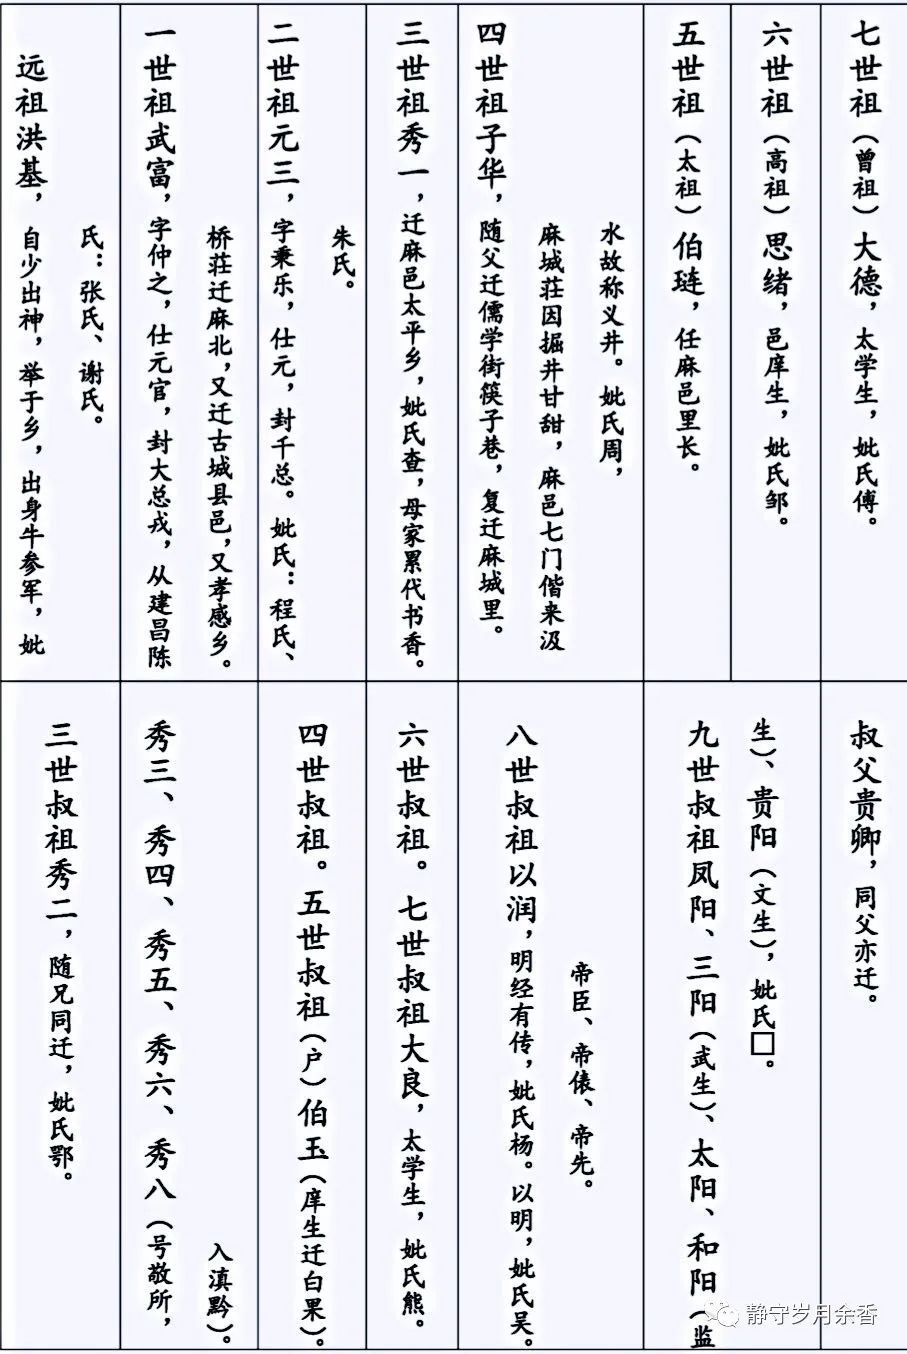 远祖洪基，自少出神，举于乡，出身牛参军，妣
氏：张氏、谢氏。
一世祖武富，字仲之，仕元官，封大总戎，从建昌陈
桥荘迁麻北，又迁古城县邑，又孝感乡。
二世祖元三，字乗乐，仕元，封千总。妣氏：程氏、
朱氏。
三世祖秀一，迁麻邑太平乡，妣氏查，母家累代书香。
四世祖子华，随父迁儒学街筷子巷，复迁麻城里。
麻城荘因掘井甘甜，麻邑七门偕来汲
水故称义井。妣氏周，
五世祖（太祖）伯琏，任麻邑里长。
六世祖（高祖）思绪，邑庠生，妣氏邹。
七世祖（曾祖）大德，太学生，妣氏傅。
三世叔祖秀二，随兄同迁，妣氏鄂。
秀三、秀四、秀五、秀六、秀八（号敬所，
入滇黔）。
四世叔祖。五世叔祖（户）伯玉（庠生迁白果）。
六世叔祖。七世叔祖大良，太学生，妣氏熊。
八世叔祖以润，明经有传，妣氏杨。以明，妣氏吴。
帝臣、帝俵、帝先。
九世叔祖凤阳、三阳（武生）、太阳、和阳（监
生）、贵阳（文生），妣氏□。
叔父贵卿，同父亦迁。
静守岁月余香